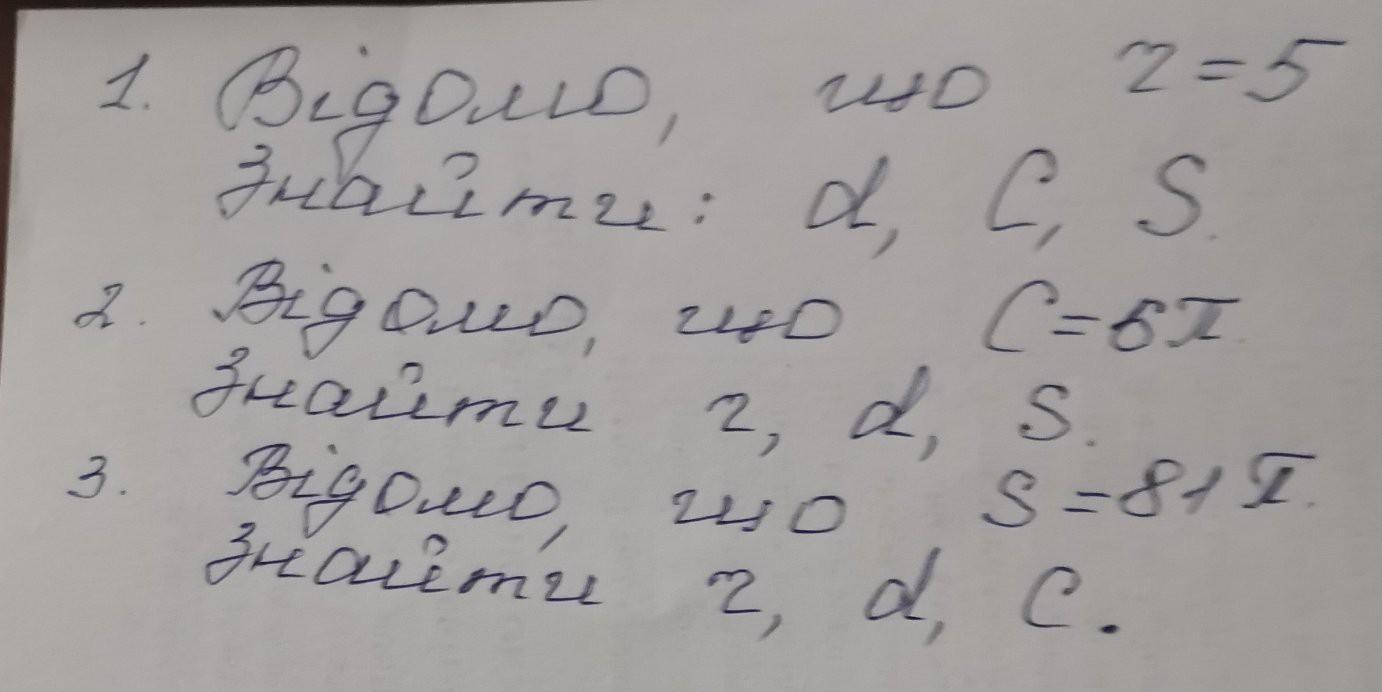 1. Відомо, що r=5
Знайти: d, C, S.
2. Відомо, що C=6π
Знайти r, d, S.
3. Відомо, що S=81π.
Знайти r, d, C.